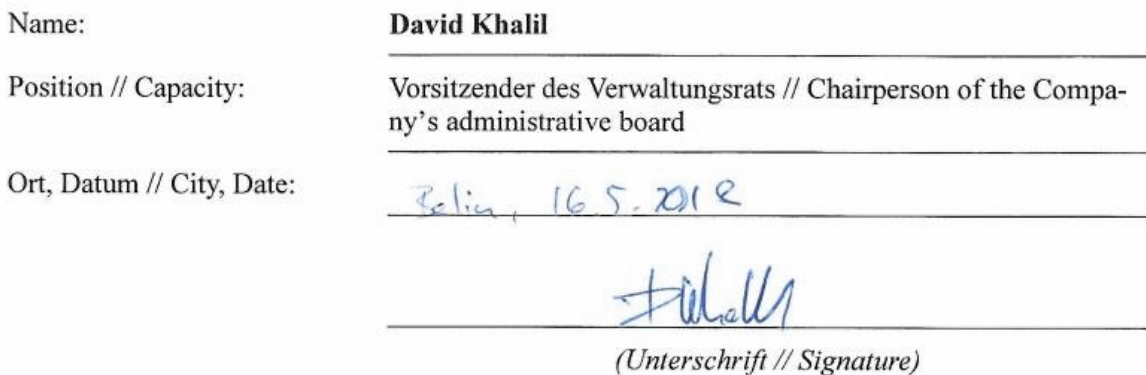 Name: David Khalil
Position // Capacity: Vorsitzender des Verwaltungsrats // Chairperson of the Compa-
ny's administrative board
Ort, Datum // City, Date: Berlin, 16.5.2018
(Unterschrift // Signature)